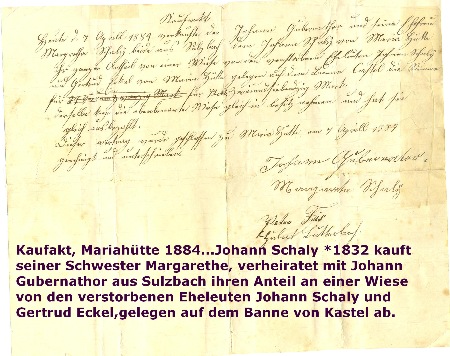 Kaufakt.
Heute d 7 Aprill 1884 verkaufte der Johann Gubernathor und seine Ehefrau
Margaretha Schaly beide aus Sulzbach dem Johann Schaly von Maria Hütte
Ihr ganzes Antheil von einer Wiese von den verstorbenen Eheleuten Johann Schaly
und Gertrud Eckel von Maria Hütte gelegen auf dem Banne Castel die Summe
für Mark
derselbe kan die Wiese gleich in besitz nehmen und hat sie
gleich ausbezahlt.
Dieser Vertrag wurde geschlossen zu Maria Hütte am 7 Aprill 1884
und unterschrieben
Johann Gubernator.
Margaretha Schaly
Peter
Kaufakt, Mariahütte 1884...Johann Schaly *1832 kauft
seiner Schwester Margarethe, verheiratet mit Johann
Gubernathor aus Sulzbach ihren Anteil an einer Wiese
von den verstorbenen Eheleuten Johann Schaly und
Gertrud Eckel,gelegen auf dem Banne von Kastel ab.